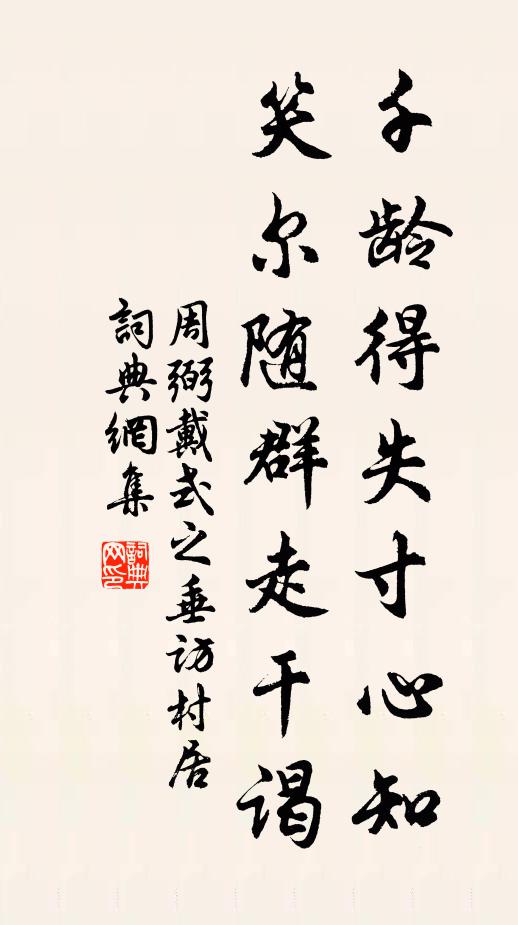 千龄得失寸心知
笑尔随群走干谒
周弼戴式之垂访村居
詞典網集
詞典网印